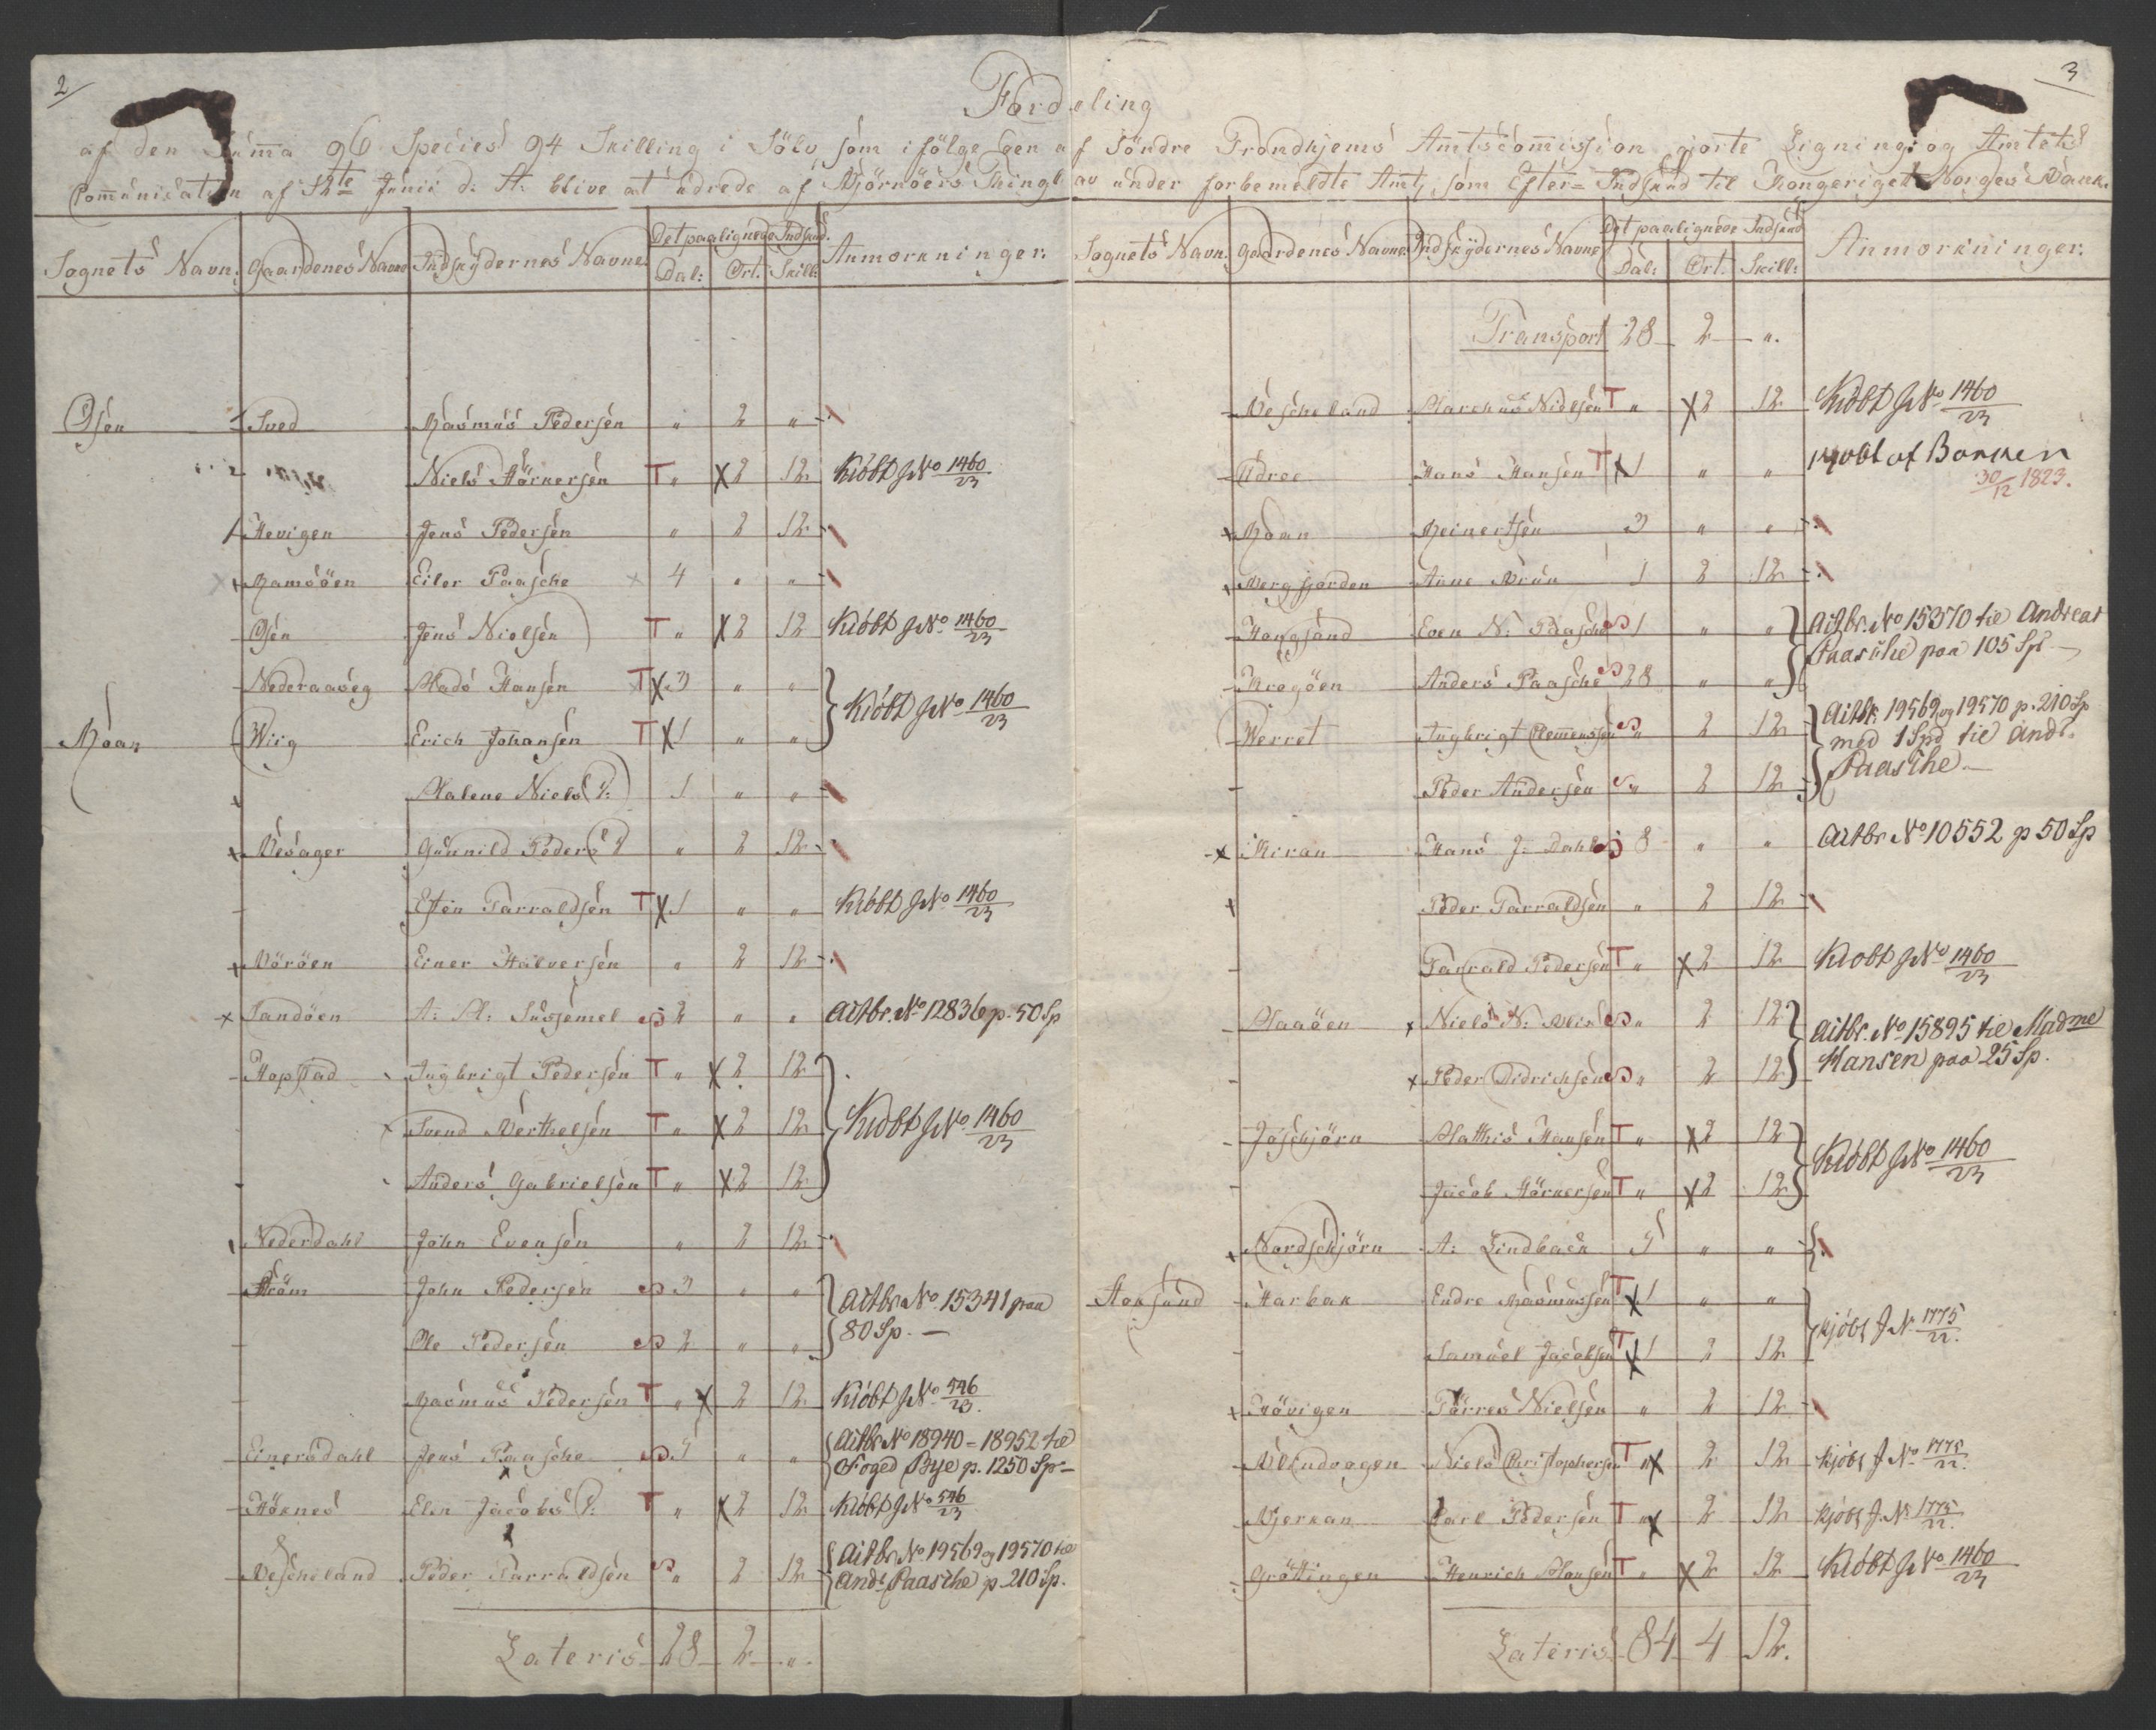 2
3
Fordeling
af den Summa 96 Species 94 Skilling i Sölv som ifölge den af Söndre Trondhjems Amtscommission gjorte Ligning og Amtets
Communication af 3die Junii d: A: blive at udrede af Bjørnöers Thinglav under forbemeldte Amt, som Efter-Indskud til Kongeriget Norges Bank.
Sognets Navn. Gaardenes Navne Indskydernes Navne. Det paalignede Indskud. Dal: Ort. Skill: Anmerkninger.
Osen Sved Rasmus Pedersen " 2 "
Niels Hörnersen T " X 2 12 Kiöbt J No 1460/23
Hevigen Jens Pedersen " 2 12
Ramsöen Eiler Paasche 4 " "
Osen Jens Nielsen T " X 2 12 Kiöbt J No 1460/23
Nederaaseg Mads Hansen T X 3 " "
Roan Wiig Erich Johansen T X 1 " " Kiöbt J No 1460/23
Malene Niels D: 1 " "
Besager Gunnild Peders D " 2 12
Esten Tarraldsen T X 1 " " Kiöbt J No 1460/23
Böröen Einer Halversen " 2 12
Sandöen A: M: Sussemel 2 " " Actbr. No 12836 p. 50 Sp
Hopstad Ingbrigt Pedersen T " X 2 12
Svend Berthelsen T " X 2 12 Kiöbt J No 1460/23
Anders Gabrielsen T " X 2 12
Nederdahl John Evensen " 2 12
Ström John Pedersen 3 " " Actbr. No 15341 paa
Ole Pedersen 2 " " 80 Sp. —
Rasmus Pedersen T " X 2 12 Kiöbt J No 546/23.
Einersdahl Jens Paasche 5 " " Actbr No 18940 = 18952 til
Foged Bye p. 1250 Sp —
Höknes Elen Jacobs D: T " X 2 12 Kiöbt J No 546/23
Beskeland Peder Tarraldsen " 2 12 Actbr. No 19569 og 19570 til
And. Paasche p. 210 Sp.
Lateris 28 2 "
Sognets Navn. Gaardenes Navne Indskydernes Navne Det paalignede Indskud Dal: Ort. Skill: Anmerkninger.
Transport 28 2 "
Bescheland Marchus Nielsen T " X 2 12 Kiöbt J No 1460/23
Udroe Hans Hansen T X 1 " " kjöbt af Banken
30/12 1823.
Roan Meinertsen 3 " "
Bergfjorden Anne Brun 1 2 12
Hougsand Even N: Paasche 1 " " Actbr. No 15370 til Andreas
Paasche paa 105 Sp —
Kregöen Anders Paasche 28 " "
Werret Ingbrigt Clemmensen " 2 12 Actbr. 19569 og 19570 p. 210 Sp
med 1 Spd til And.
Peder Andersen " 2 12 Paasche —
Kiran Hans J: Dahl 8 " " Actbr No 10552 p 50 Sp
Peder Tarraldsen " 2 12
Tarrald Pedersen T " X 2 12 Kiobt J No 1460/23
Maaöen Niels N: " 2 12 Actbr. No 15895 til Madme
Peder Didrichsen " 2 12 Hansen paa 25 Sp.
Jöschjörn Matthis Hansen T " X 2 12 Kiöbt J No 1460/23
Jacob Hörnersen T " X 2 12
Nordschjörn A: Lindbach 5 " "
Stoksund Harbak Endre Rasmussen T X 1 " " kjöbt J N 1775/22.
Samuel Jacobsen T X 1 2 12
Hövigen Törres Nielsen " 2 12
Niels Christophersen T " X 2 12 kjöbt J No 1775/22.
Bjerkan Carl Pedersen T " X 2 12 kjöbt J. No 1775/22.
Gröttingen Henrich Hansen T " X 2 12 Kiöbt J No 1460/23
Lateris 84 4 12.